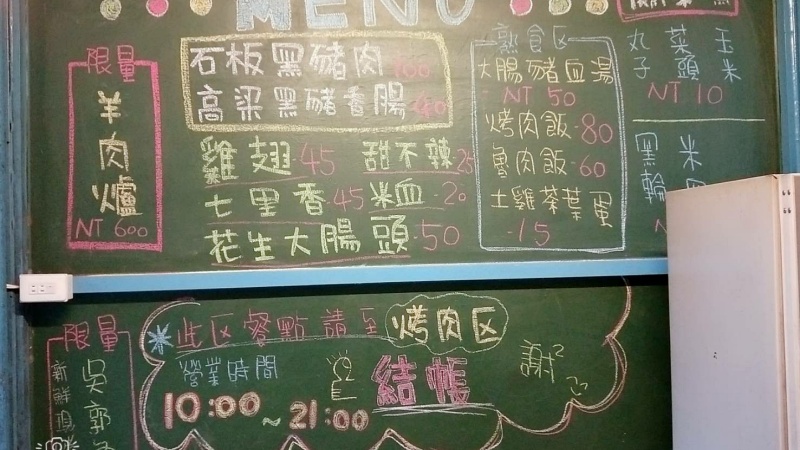 MENU
限量
羊肉爐
NT 600
石板黑豬肉 100
高梁黑豬香腸 40
雞翅 45
甜不辣 25
七里香 45
米血 20
花生大腸頭 50
熟食区
大腸豬血湯
NT 50
烤肉飯 80
魯肉飯 60
土雞茶葉蛋
15
玉米
菜頭
丸子
NT 10
米
黑輪
限量
新鮮現
吳郭
此区餐點請至烤肉区
結帳
營業時間
10:00 ~ 21:00
謝2